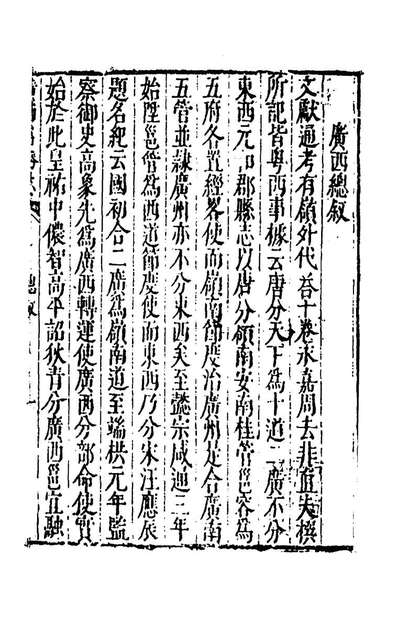 廣西總敘
文獻通考有嶺外代答十卷永嘉周去非直夫撰
所記皆粤西事據云唐分天下爲十道二廣不分
東西元和郡縣志以唐分嶺南安南桂管邕容爲
五府各置經畧使而嶺南節度治廣州是合廣南
五管並隸廣州亦不分東西矣至懿宗咸通三年
始陞邕管爲西道節度使而東西乃分宋汪應辰
題名紀云國初合二廣爲嶺南道至端拱元年監
察御史高象先爲廣西轉運使廣西分部命使實
始於此皇祐中儂智高平詔狄青分廣西邕宜融